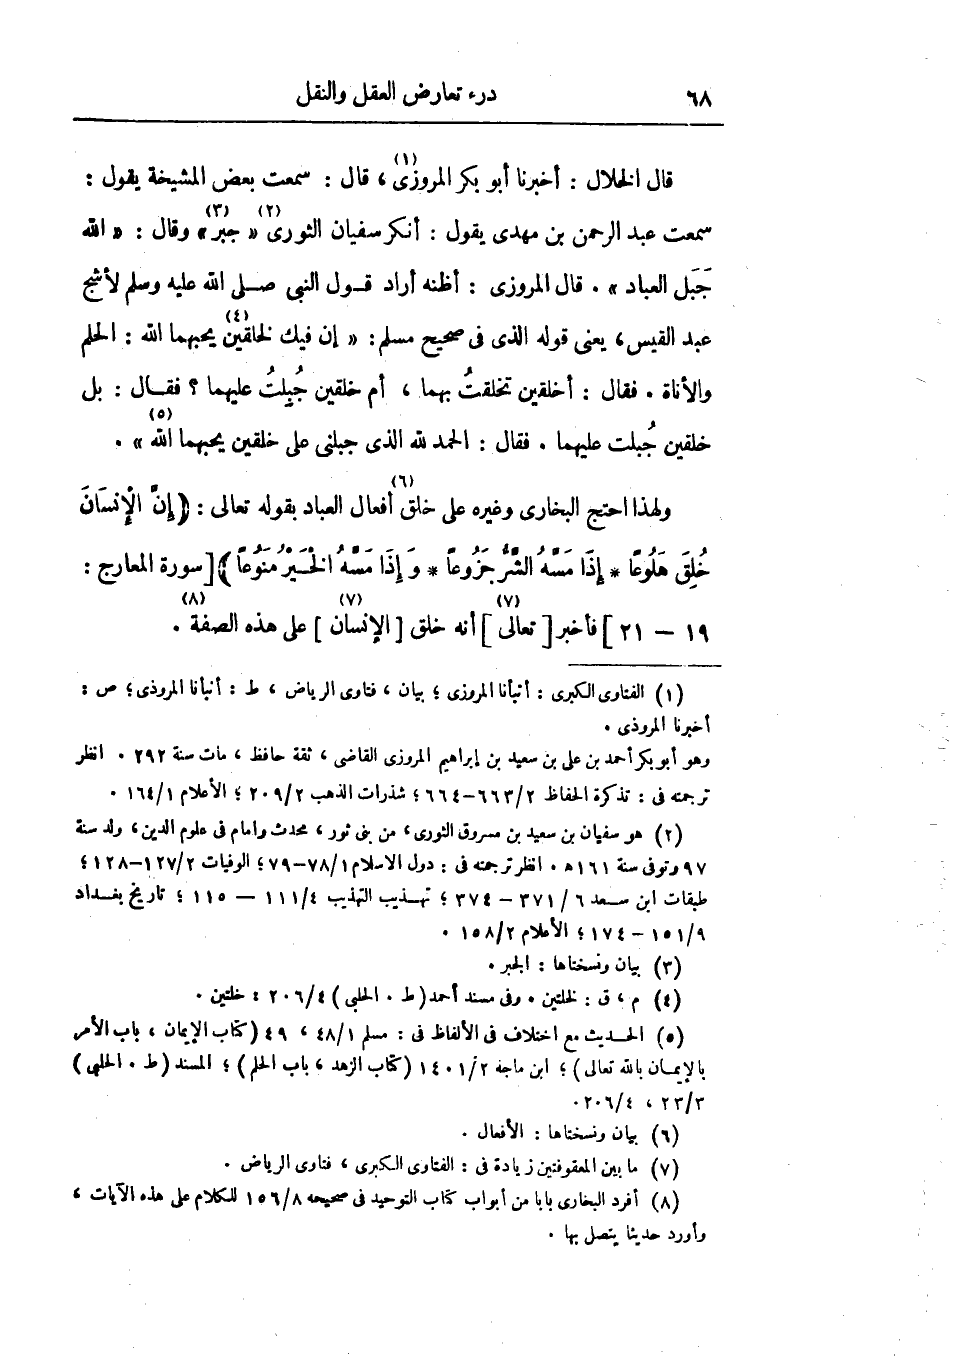 ٦٨ درء تعارض العقل والنقل
قال الخلال : أخبرنا أبو بكر المروزى(١) ، قال : سمعت بعض المشيخة يقول :
سمعت عبد الرحمن بن مهدى يقول : أنكر سفيان الثورى(٢) « جبر(٣) » وقال : « الله
جَبَل العباد » . قال المروزى : أظنه أراد قول النبى صلى الله عليه وسلم لأشج
عبد القيس ، يعنى قوله الذى فى صحيح مسلم : « إن فيك لخلقين(٤) يحبهما الله : الحلم
والأناة . فقال : أخلقين تخلقتُ بهما ، أم خلقين جُبِلتُ عليهما ؟ فقال : بل
خلقين جُبلت عليهما . فقال : الحمد لله الذى جبلنى على خلقين يحبهما الله(٥) » .
ولهذا احتج البخارى وغيره على خلق أفعال(٦) العباد بقوله تعالى : ﴿ إِنَّ الْإِنسَانَ
خُلِقَ هَلُوعًا * إِذَا مَسَّهُ الشَّرُّ جَزُوعًا * وَإِذَا مَسَّهُ الْخَيْرُ مَنُوعًا ﴾ [ سورة المعارج :
١٩ – ٢١ ] فأخبر [ تعالى(٧) ] أنه خلق [ الإنسان(٧) ] على هذه الصفة(٨) .
(١) الفتاوى الكبرى : أنبأنا المروزى ؛ بيان ، فتاوى الرياض ، ط : أنبأنا المروذى ؛ ص :
أخبرنا المروذى .
وهو أبو بكر أحمد بن على بن سعيد بن إبراهيم المروزى القاضى ، ثقة حافظ ، مات سنة ٢٩٢ . انظر
ترجمته فى : تذكرة الحفاظ ٦٦٣/٢–٦٦٤ ؛ شذرات الذهب ٢٠٩/٢ ؛ الأعلام ١٦٤/١ .
(٢) هو سفيان بن سعيد بن مسروق الثورى ، من بنى ثور ، محدث وإمام فى علوم الدين ، ولد سنة
٩٧ وتوفى سنة ١٦١ ه . انظر ترجمته فى : دول الاسلام ٧٨/١–٧٩ ؛ الوفيات ١٢٧/٢–١٢٨ ؛
طبقات ابن سعد ٣٧١/٦ – ٣٧٤ ؛ تهذيب التهذيب ١١١/٤ – ١١٥ ؛ تاريخ بغداد
١٥١/٩ – ١٧٤ ؛ الأعلام ١٥٨/٢ .
(٣) بيان ونسختاها : الجبر .
(٤) م ، ق : لخلتين . وفى مسند أحمد ( ط . الحلبى ) ٢٠٦/٤ : خلتين .
(٥) الحديث مع اختلاف فى الألفاظ فى : مسلم ٤٨/١ ، ٤٩ ( كتاب الإيمان ، باب الأمر
بالإيمان بالله تعالى ) ؛ ابن ماجه ١٤٠١/٢ ( كتاب الزهد ، باب الحلم ) ؛ المسند ( ط . الحلبى )
٢٣/٣ ، ٢٠٦/٤ .
(٦) بيان ونسختاها : الأفعال .
(٧) ما بين المعقوفتين زيادة فى : الفتاوى الكبرى ، فتاوى الرياض .
(٨) أفرد البخارى بابا من أبواب كتاب التوحيد فى صحيحه ١٥٦/٨ للكلام على هذه الآيات ،
وأورد حديثا يتصل بها .